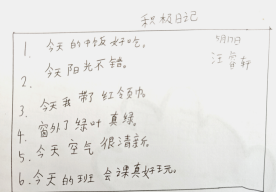 积极日记
5月17日
1. 今天的中饭好吃。
2. 今天阳光不错。
3. 今天我带了红领巾
4. 窗外了绿叶真绿。
5. 今天空气很清新。
6. 今天的班会课真好玩。